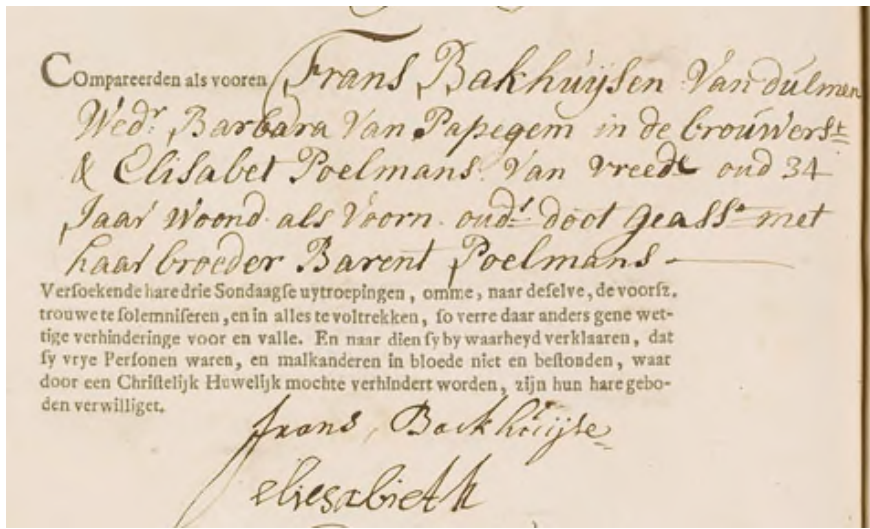 Compareerden als vooren Frans Bakhuÿsen Van dulmen
Wed.r Barbara Van Papegem in de brouwerst
& Elisabet Poelmans. Van vreede oud 34
Jaar woond. als Voorn. oud.s doot geasst met
haar broeder Barent Poelmans
Versoekende hare drie Sondaagse uytroepingen, omme, naar deselve, de voorsz.
trouwe te solemniseren, en in alles te voltrekken, so verre daar anders gene wet-
tige verhinderinge voor en valle. En naar dien sy by waarheyd verklaaren, dat
sy vrye Personen waren, en malkanderen in bloede niet en bestonden, waar
door een Christelijk Huwelijk mochte verhindert worden, zijn hun hare gebo-
den verwilliget.
frans Backhuijse
eliesabieth